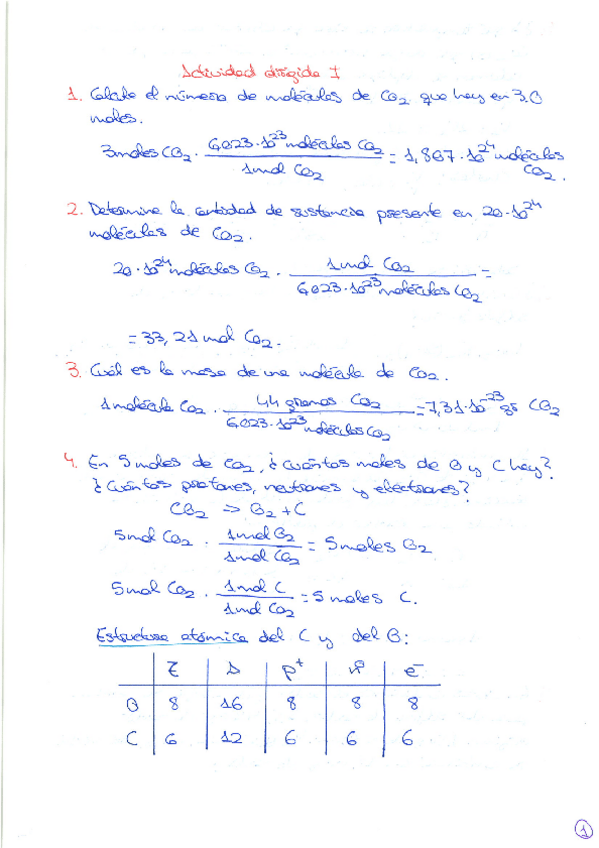 Actividad dirigida I
1. Calcule el número de moléculas de CO2 que hay en 3,0
moles.
3 moles CO2 · 6,023·10^23 moléculas CO2 / 1 mol CO2 = 1,807·10^24 moléculas CO2.
2. Determine la cantidad de sustancia presente en 20·10^24
moléculas de CO2.
20·10^24 moléculas CO2 · 1 mol CO2 / 6,023·10^23 moléculas CO2 =
= 33,21 mol CO2.
3. Cuál es la masa de una molécula de CO2.
1 molécula CO2 · 44 gramos CO2 / 6,023·10^23 moléculas CO2 = 7,31·10^-23 gs CO2
4. En 5 moles de CO2, ¿cuántos moles de O y C hay?
¿Cuántos protones, neutrones y electrones?
CO2 → O2 + C
5 mol CO2 · 1 mol O2 / 1 mol CO2 = 5 moles O2
5 mol CO2 · 1 mol C / 1 mol CO2 = 5 moles C.
Estructura atómica del C y del O:
Z A p+ nº e-
O 8 16 8 8 8
C 6 12 6 6 6
1